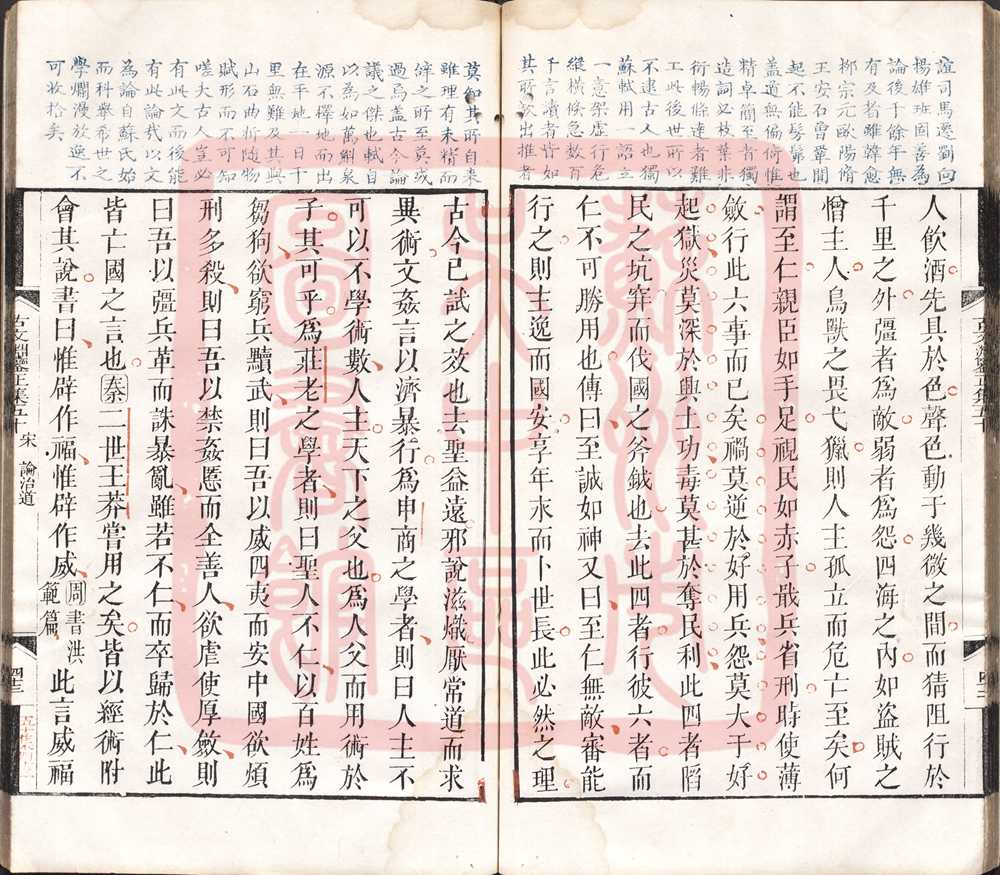 誼司馬遷劉向
楊雄班固善為
論後千餘年無
有及者雖韓愈
柳宗元歐陽脩
王安石曾鞏間
起不能髣髴也
蓋道無偏倚惟
精卓簡至者獨
造詞必枝葉非
衍暢條達者難
工此後世所以
不逮古人也獨
蘇軾用一語立
一意架虛行危
縱橫倏急數百
千言讀者皆如
其所欲出推者
人飲酒先具於色聲色動于幾微之間而猜阻行於
千里之外彊者為敵弱者為怨四海之內如盜賊之
憎主人鳥獸之畏弋獵則人主孤立而危亡至矣何
謂至仁視臣如手足視民如赤子戢兵省刑時使薄
斂行此六事而已矣禍莫逆於好用兵怨莫大于好
起獄災莫深於興土功毒莫甚於奪民利此四者陷
民之坑穽而伐國之斧鉞也去此四者行彼六者而
仁不可勝用也傳曰至誠如神又曰至仁無敵審能
行之則主逸而國安享年永而卜世長此必然之理
莫知其所自來
雖理有未精而
辭之所至莫或
過焉蓋古今論
議之傑也軾自
以為如萬斛泉
源不擇地而出
在平地一日千
里無難及其與
山石曲折隨物
賦形而不可知
嗟夫古人豈必
有此文而後能
有此論哉以文
為論自蘇氏始
而科舉希世之
學爛漫放逸不
可收拾矣
古今已試之效也去聖益遠邪說滋熾厭常道而求
異術文姦言以濟暴行為申商之學者則曰人主不
可以不學術數人主天下之父也為人父而用術於
子其可乎為莊老之學者則曰聖人不仁以百姓為
芻狗欲窮兵黷武則曰吾以威四夷而安中國欲煩
刑多殺則曰吾以禁姦慝而全善人欲虐使厚斂則
曰吾以彊兵革而誅暴亂雖若不仁而卒歸於仁此
皆亡國之言也秦二世王莽嘗用之矣皆以經術附
會其說書曰惟辟作福惟辟作威周書洪範篇此言威福
古文淵鑒正集五十 宋 論治道